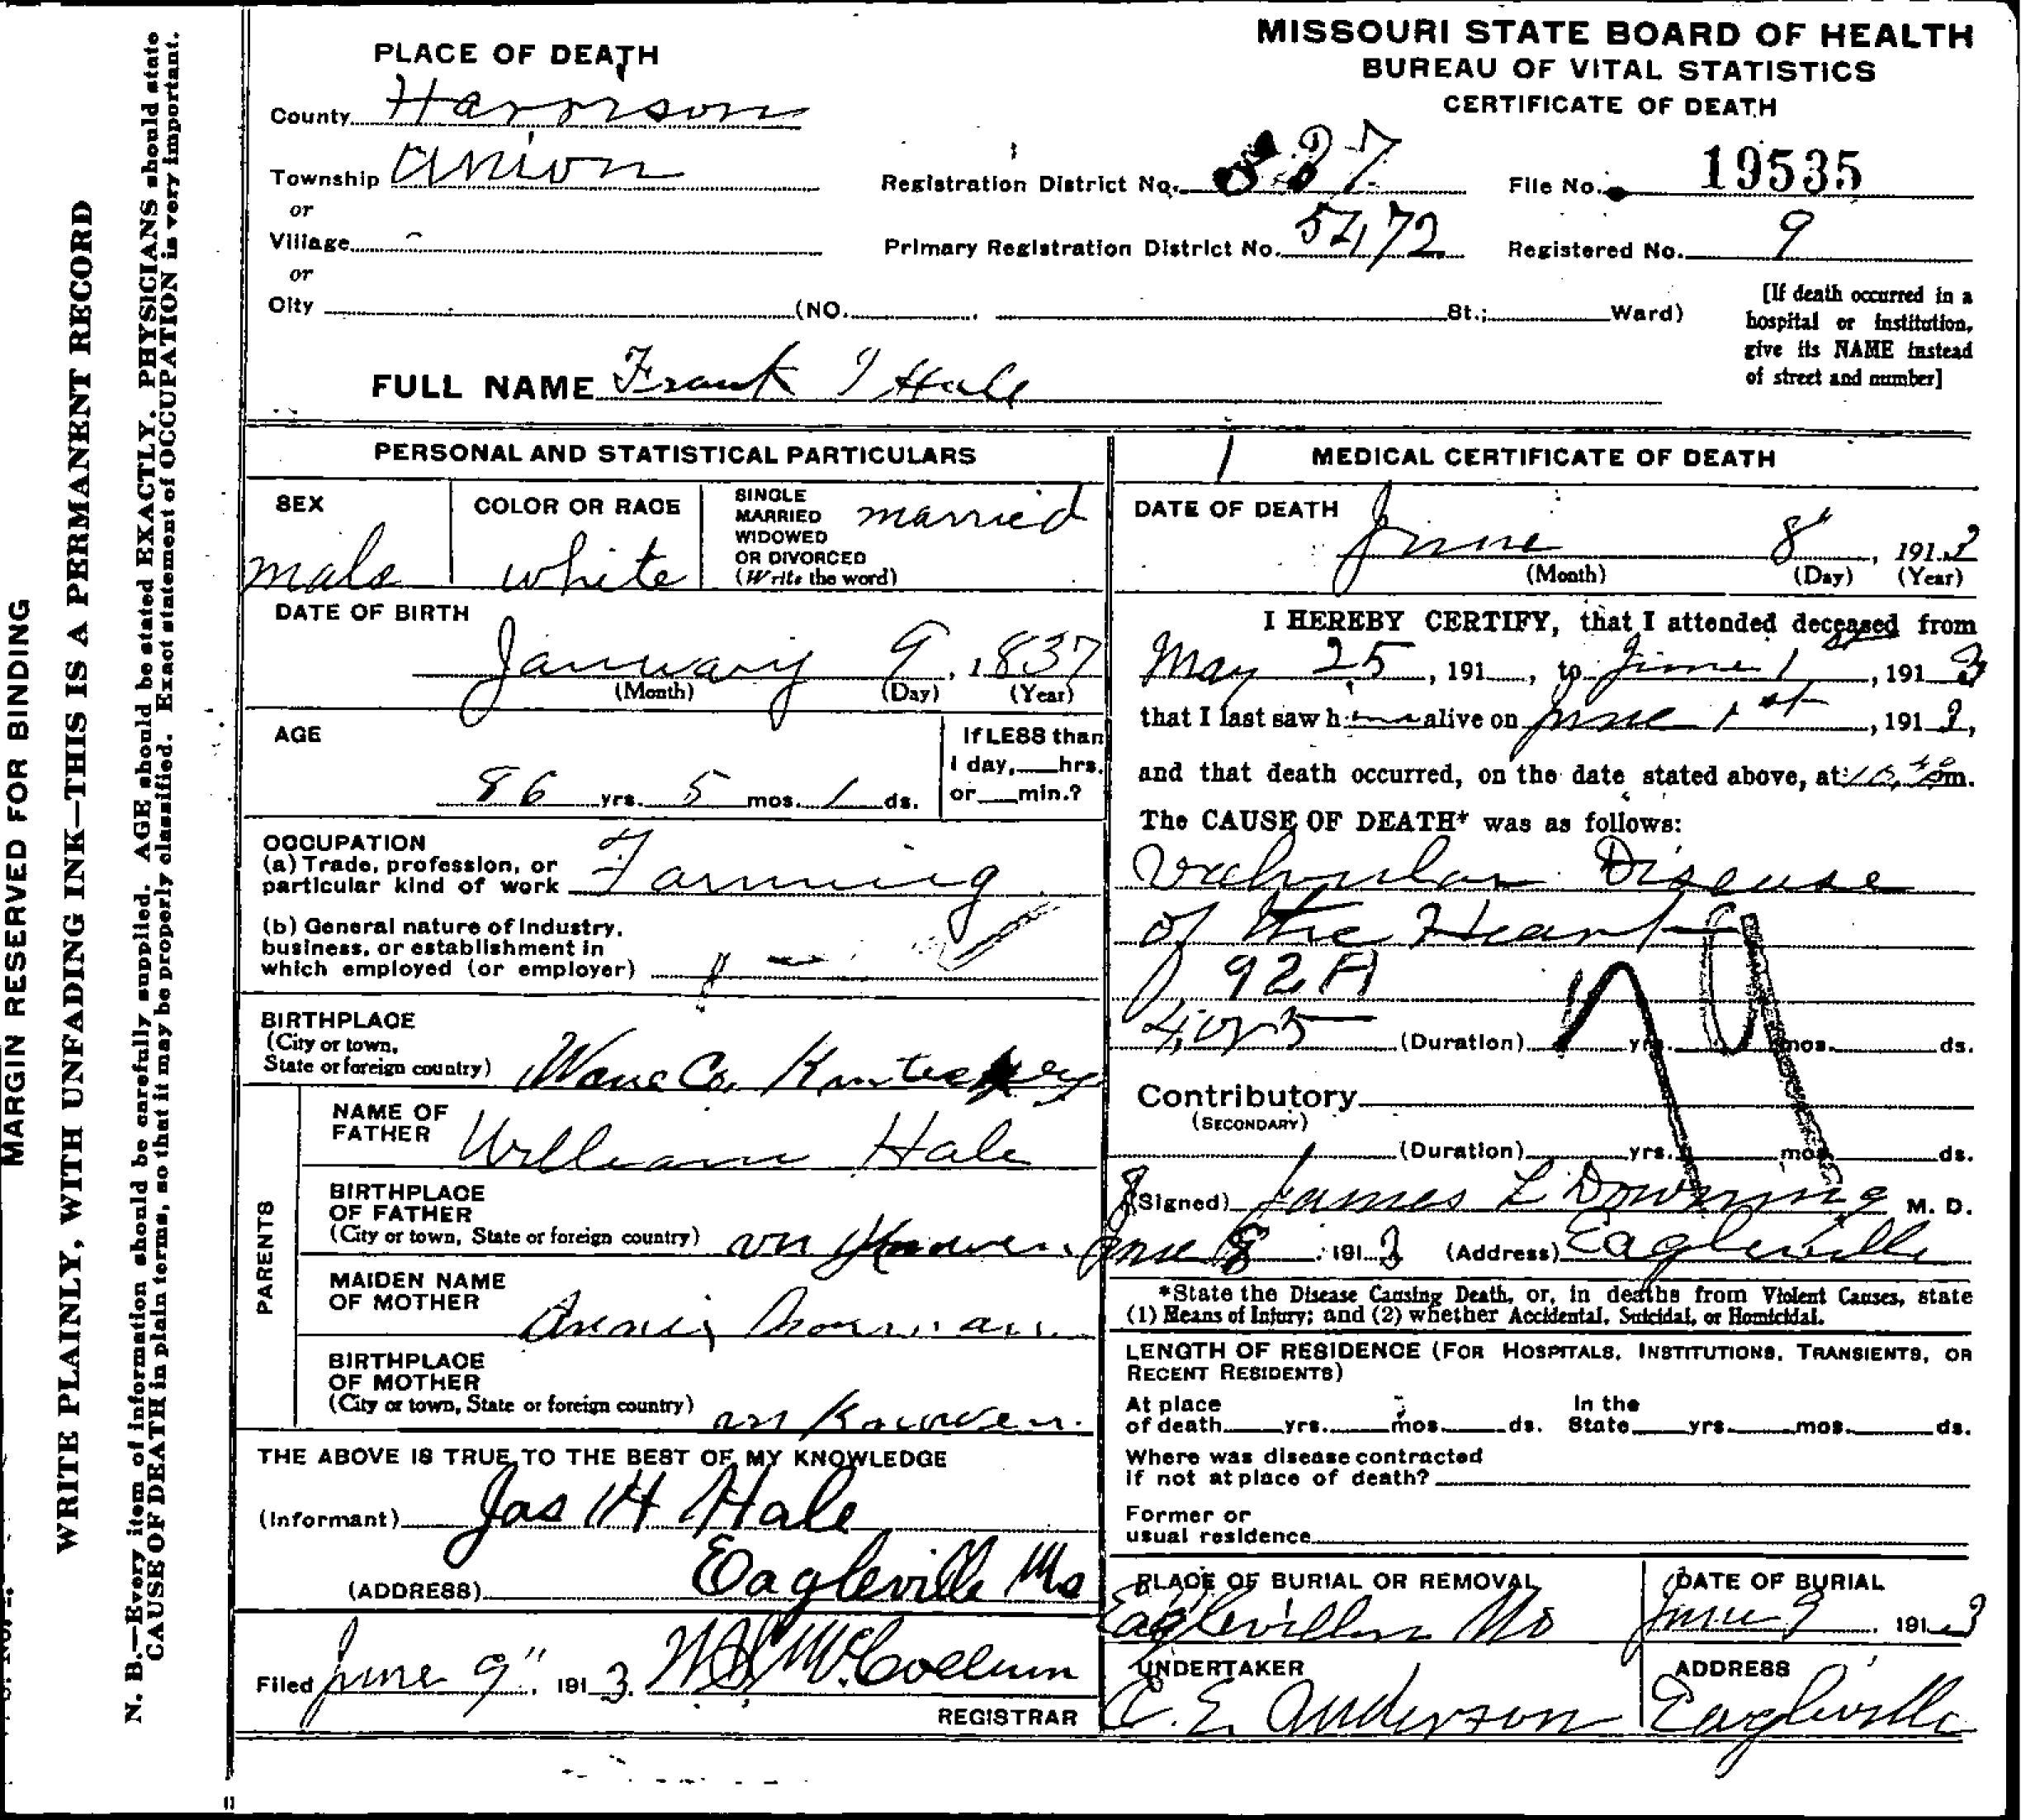 MISSOURI STATE BOARD OF HEALTH
BUREAU OF VITAL STATISTICS
CERTIFICATE OF DEATH
PLACE OF DEATH
County Harrison
Township Union
or
Village
or
City (NO. St.; Ward)
Registration District No. 37
File No. 19535
Primary Registration District No. 5472
Registered No. 9
[If death occurred in a
hospital or institution,
give its NAME instead
of street and number]
FULL NAME Frank I Hale
PERSONAL AND STATISTICAL PARTICULARS
SEX
male
COLOR OR RACE
white
SINGLE
MARRIED
WIDOWED
OR DIVORCED
(Write the word)
married
DATE OF BIRTH
January 9, 1837
(Month) (Day) (Year)
AGE
86 yrs. 5 mos. 1 ds.
If LESS than
1 day, hrs.
or min.?
OCCUPATION
(a) Trade, profession, or
particular kind of work Farming
(b) General nature of Industry,
business, or establishment in
which employed (or employer)
BIRTHPLACE
(City or town,
State or foreign country) Co,
PARENTS
NAME OF
FATHER William Hale
BIRTHPLACE
OF FATHER
(City or town, State or foreign country) un Knowen
MAIDEN NAME
OF MOTHER
BIRTHPLACE
OF MOTHER
(City or town, State or foreign country) un Knowen.
THE ABOVE IS TRUE TO THE BEST OF MY KNOWLEDGE
(Informant) Jas H Hale
(ADDRESS) Eagleville Mo
Filed June 9", 1913. McCollum
REGISTRAR
MEDICAL CERTIFICATE OF DEATH
DATE OF DEATH
June 8", 1913
(Month) (Day) (Year)
I HEREBY CERTIFY, that I attended deceased from
May 25, 191 , to June 1st, 1913
that I last saw him alive on June 1st, 1913,
and that death occurred, on the date stated above, at m.
The CAUSE OF DEATH* was as follows:
Valvular Disease
of the Heart
92A
(Duration) yrs. mos. ds.
Contributory
(SECONDARY)
(Duration) yrs. mos. ds.
(Signed) James L Downing M. D.
June 8, 1913 (Address) Eagleville
*State the Disease Causing Death, or, in deaths from Violent Causes, state
(1) Means of Injury; and (2) whether Accidental, Suicidal, or Homicidal.
LENGTH OF RESIDENCE (FOR HOSPITALS, INSTITUTIONS, TRANSIENTS, OR
RECENT RESIDENTS)
At place In the
of death yrs. mos. ds. State yrs. mos. ds.
Where was disease contracted
if not at place of death?
Former or
usual residence
PLACE OF BURIAL OR REMOVAL
Eagleville Mo
DATE OF BURIAL
June 9, 1913
UNDERTAKER
C. E. Anderson
ADDRESS
Eagleville
MARGIN RESERVED FOR BINDING
WRITE PLAINLY, WITH UNFADING INK—THIS IS A PERMANENT RECORD
N. B.—Every item of information should be carefully supplied. AGE should be stated EXACTLY. PHYSICIANS should state
CAUSE OF DEATH in plain terms, so that it may be properly classified. Exact statement of OCCUPATION is very important.